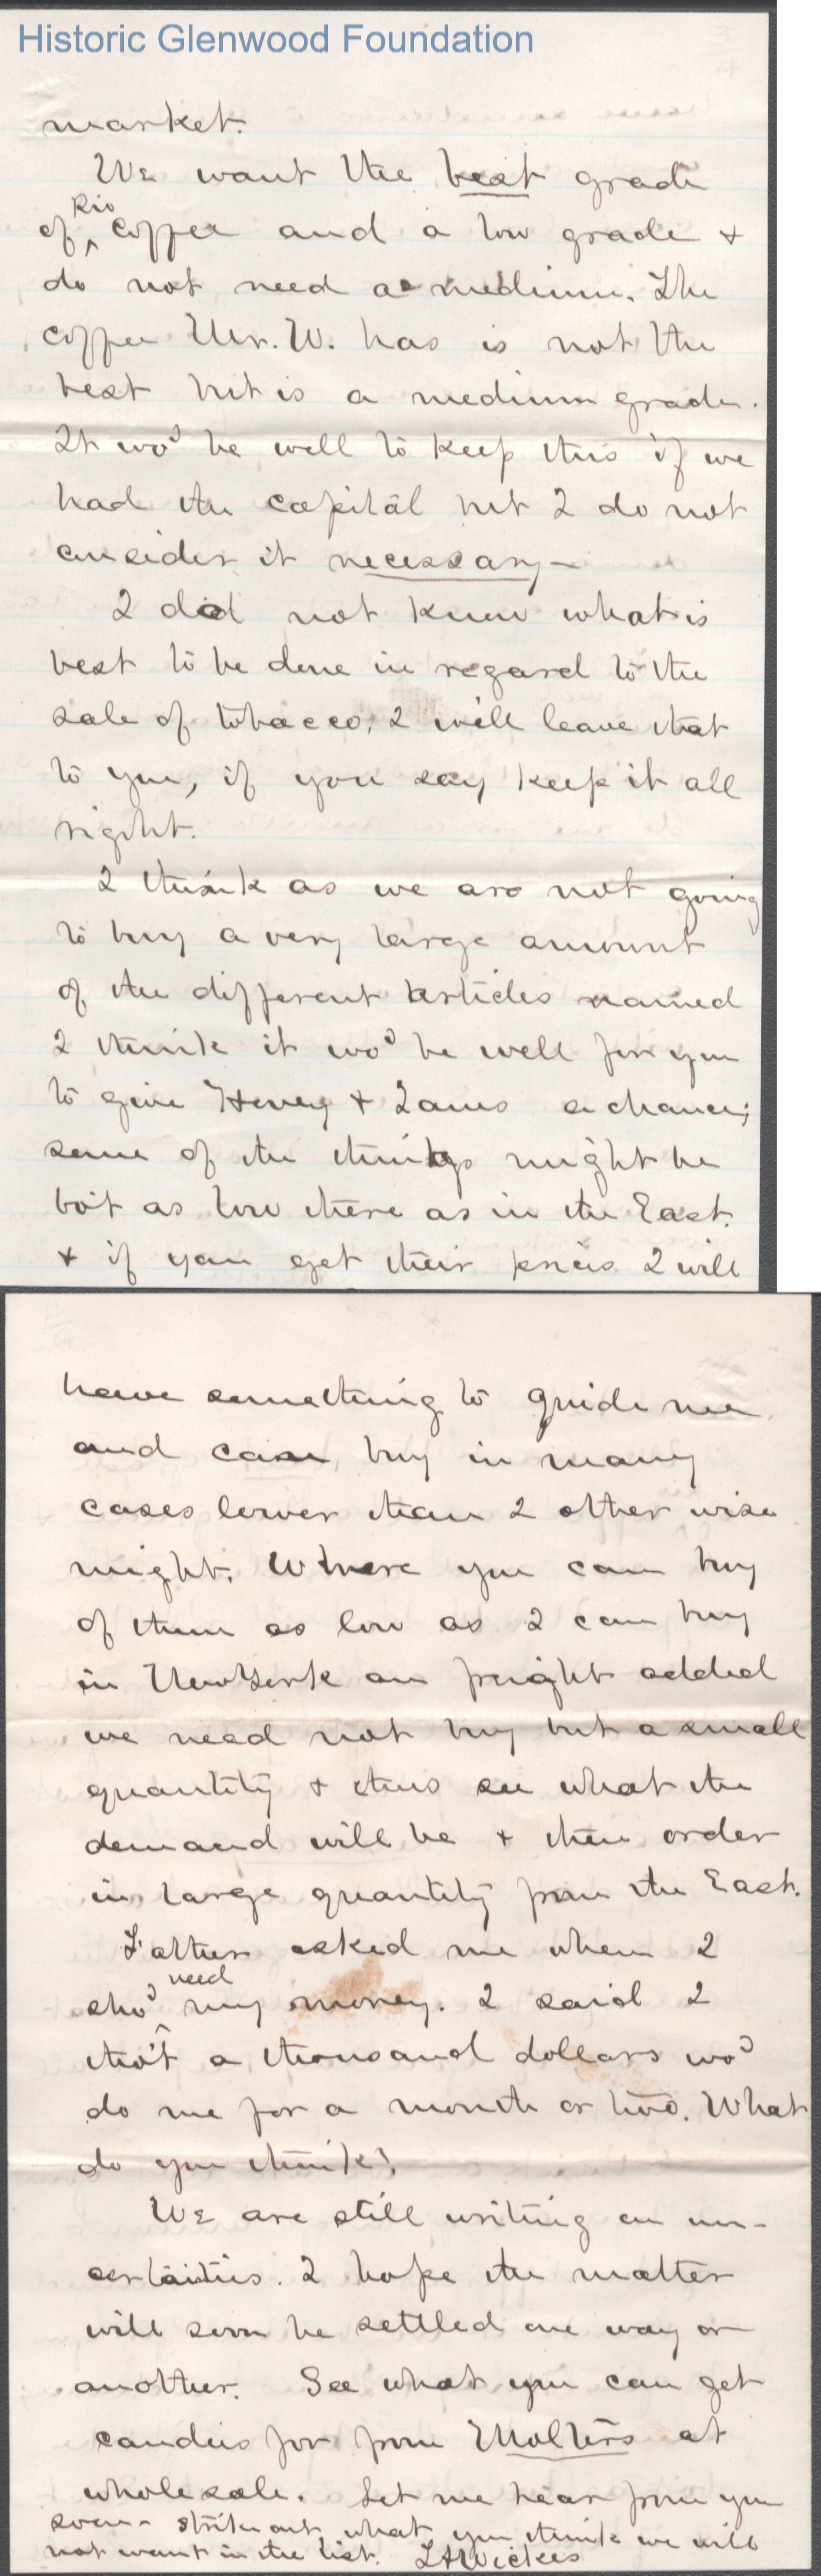 Historic Glenwood Foundation
market.
We want the best grade
of Rio coffee and a low grade &
do not need a medium. The
coffee Mr. W. has is not the
best but is a medium grade.
It wod be well to keep this if we
had the capital but I do not
consider it necessary—
I did not know what is
best to be done in regard to the
sale of tobacco, I will leave that
to you, if you say keep it all
right.
I think as we are not going
to buy a very large amount
of the different articles named
I think it wod be well for you
to give & a chance;
some of the things might be
bo't as low there as in the East.
& if you get their prices I will
have something to guide me
and can buy in many
cases lower than I other wise
might. Where you can buy
of them as low as I can buy
in New York an freight added
we need not buy but a small
quantity & thus see what the
demand will be & then order
in large quantity from the East.
Father asked me when I
shod need my money. I said I
tho't a thousand dollars wod
do me for a month or two. What
do you think?
We are still writing on un-
certainties. I hope the matter
will soon be settled one way or
another. See what you can get
candies for from Molters at
wholesale. Let me hear from you
soon - Strike out what you think we will
not want in the list. Wickes